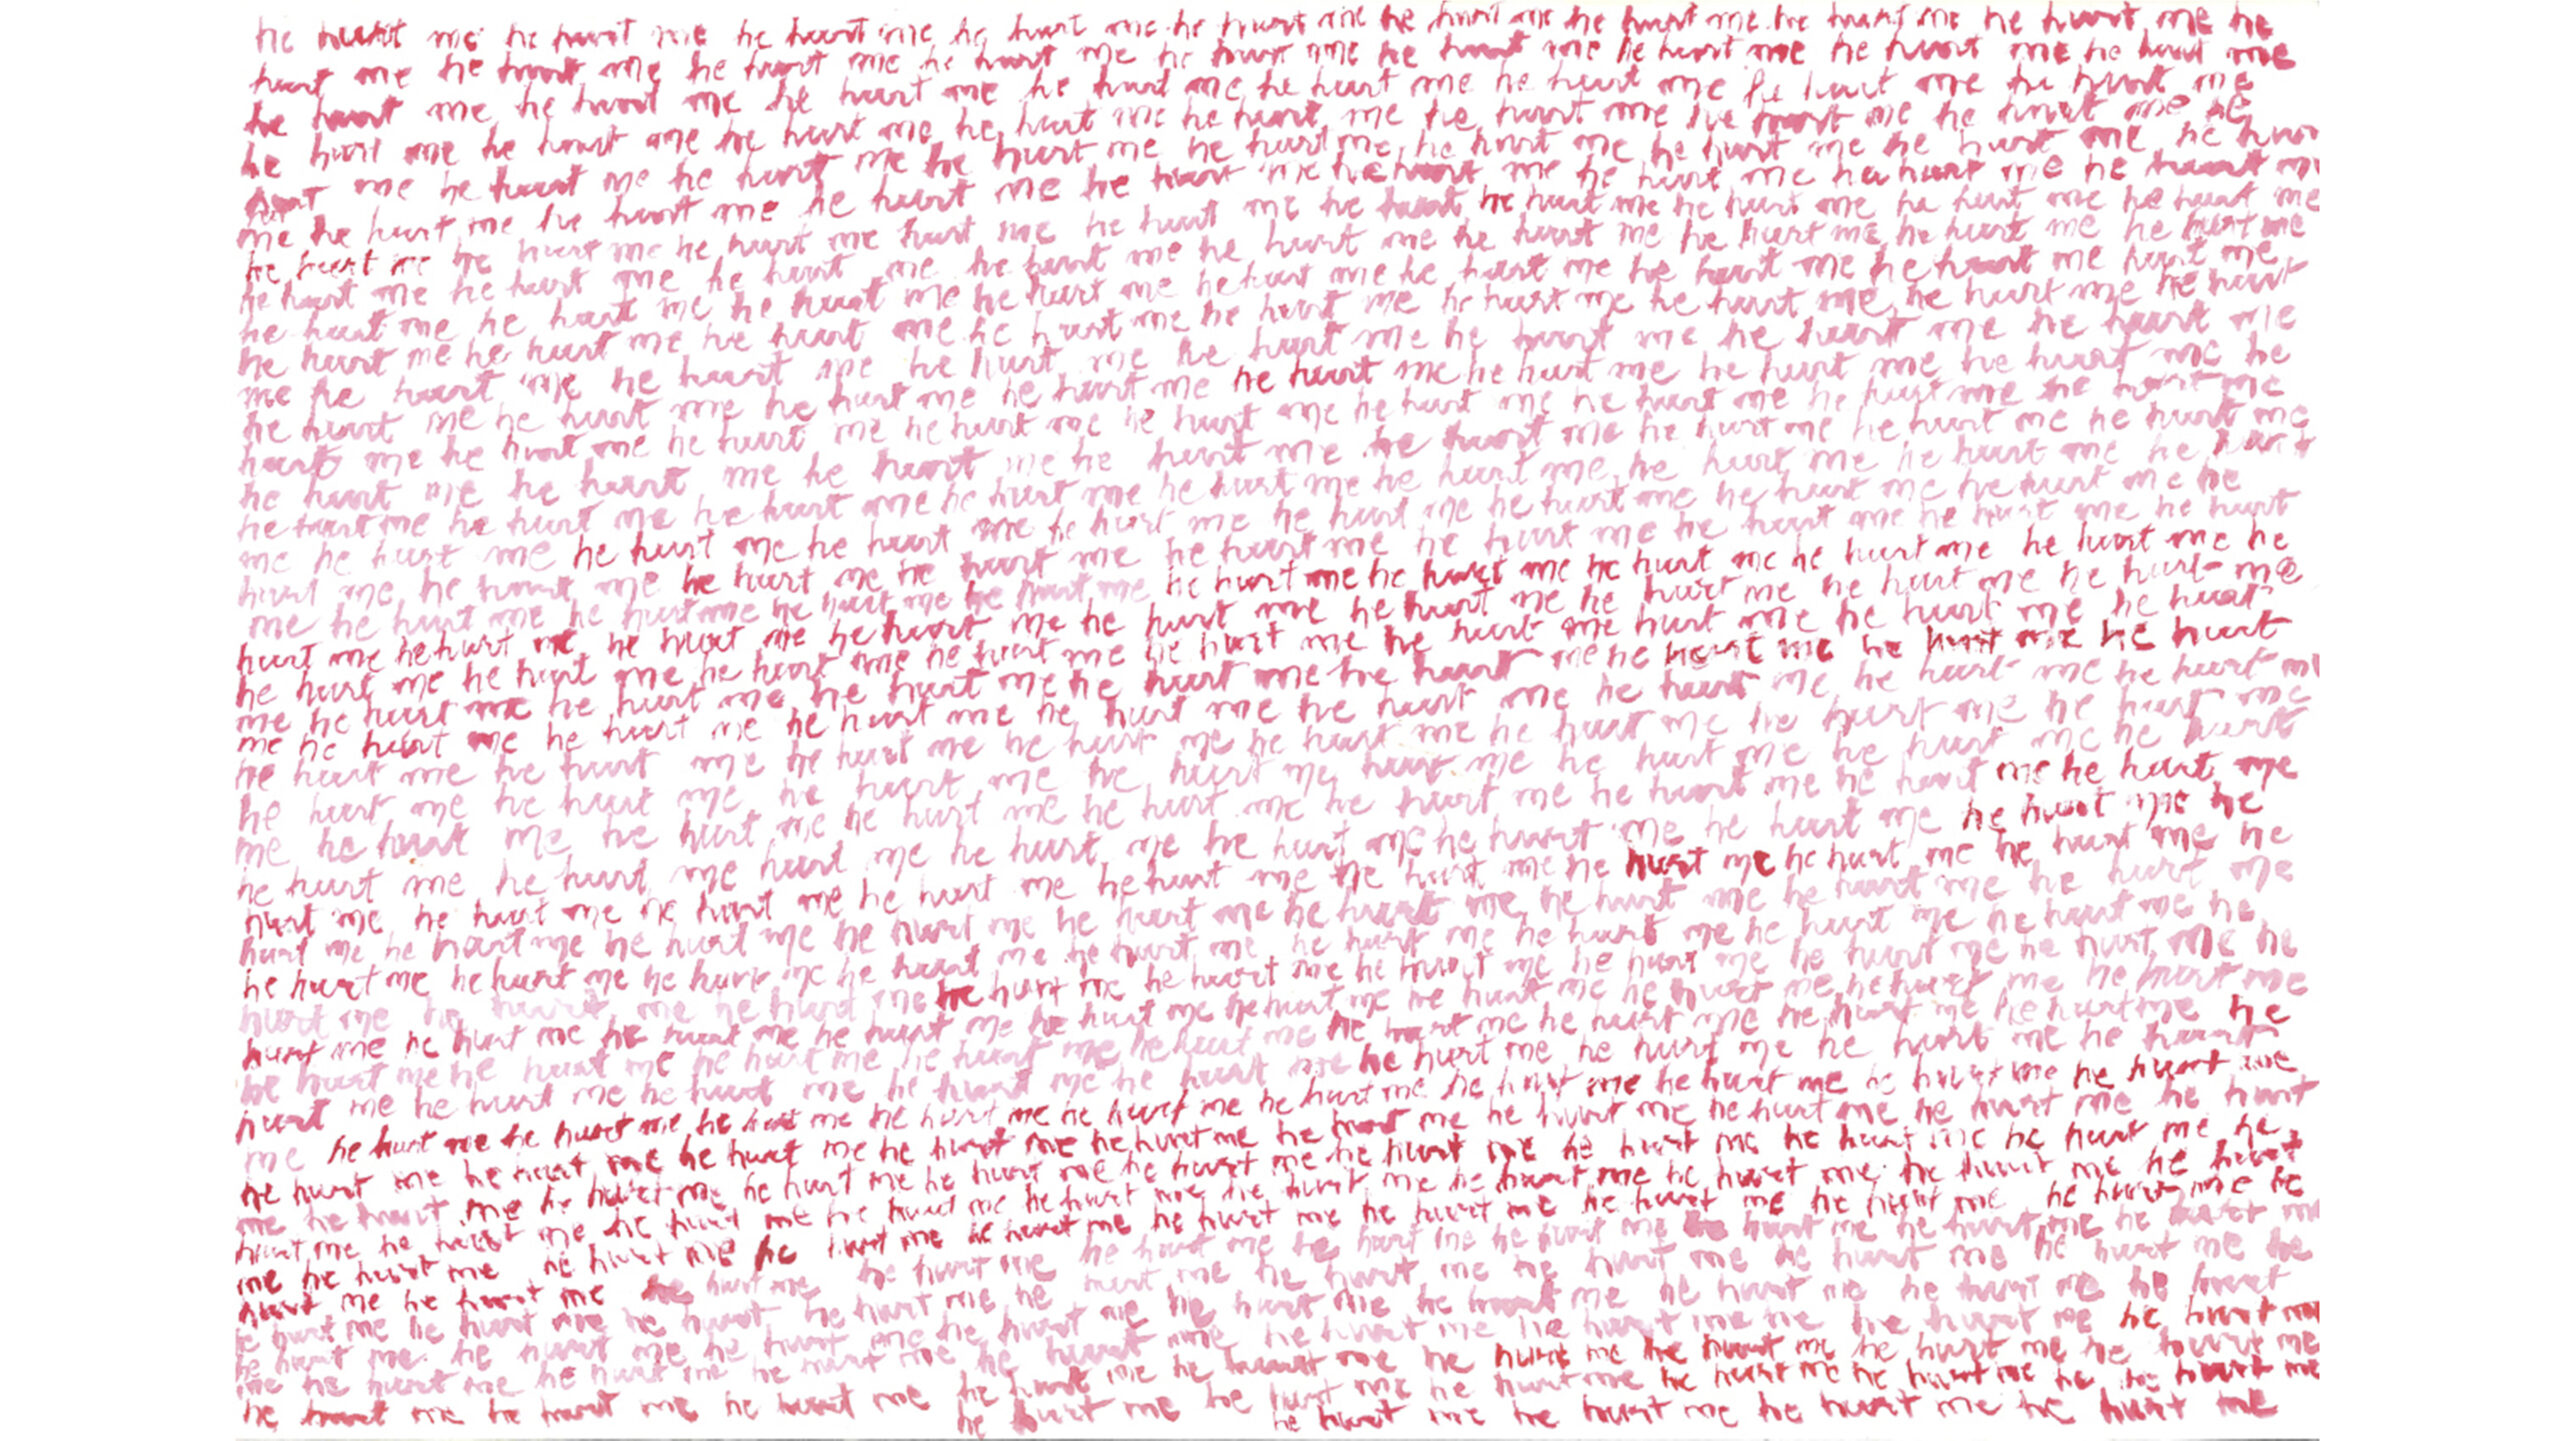 he hurt me he hurt me he hurt me he hurt me he hurt me he hurt me he hurt me he hurt me he hurt me he
hurt me he hurt me he hurt me he hurt me he hurt me he hurt me he hurt me he hurt me he hurt me
he hurt me he hurt me he hurt me he hurt me he hurt me he hurt me he hurt me he hurt me
he hurt me he hurt me he hurt me he hurt me he hurt me he hurt me he hurt me he hurt me he
hurt me he hurt me he hurt me he hurt me he hurt me he hurt me he hurt me he hurt me he hurt
me he hurt me he hurt me he hurt me he hurt me he hurt me he hurt me he hurt me he hurt me
he hurt me he hurt me he hurt me hurt me he hurt me he hurt he hurt me he hurt me he hurt me he hurt me
he hurt me he hurt me he hurt me he hurt me he hurt me he hurt me he hurt me he hurt me he hurt me
he hurt me he hurt me he hurt me he hurt me he hurt me he hurt me he hurt me he hurt me hurt me
he hurt me he hurt me he hurt me he hurt me he hurt me he hurt me he hurt me he hurt me he hurt
me he hurt me he hurt me he hurt me he hurt me he hurt me he hurt me he hurt me
he hurt me he hurt me he hurt me he hurt me he hurt me he hurt me he hurt me he hurt me he
hurt me he hurt me he hurt me he hurt me he hurt me he hurt me he hurt me he hurt me he hurt me
he hurt me he hurt me he hurt me he hurt me he hurt me he hurt me he hurt me he hurt me
he hurt me he hurt me he hurt me he hurt me he hurt me he hurt me he hurt me he hurt me he hurt
me he hurt me he hurt me he hurt me he hurt me he hurt me he hurt me he hurt me he
hurt me he hurt me he hurt me he hurt me he hurt me he hurt me he hurt me he hurt me he hurt
me he hurt me he hurt me he hurt me he hurt me he hurt me he hurt me he hurt me he hurt me he hurt me he
hurt me he hurt me he hurt me he hurt me he hurt me he hurt me he hurt me he hurt me he hurt me
he hurt me he hurt me he hurt me he hurt me he hurt me he hurt me hurt me he hurt me he hurt
me he hurt me he hurt me he hurt me he hurt me he hurt me he hurt me he hurt me he hurt
me he hurt me he hurt me he hurt me he hurt me he hurt me he hurt me he hurt me he hurt me
he hurt me he hurt me he hurt me he hurt me he hurt me he hurt me he hurt me he hurt me
he hurt me he hurt me he hurt me he hurt me hurt me he hurt me he hurt me he hurt
me he hurt me he hurt me he hurt me he hurt me he hurt me he hurt me he hurt me he hurt me
he hurt me he hurt me hurt me he hurt me he hurt me he hurt me he hurt me he hurt me he
hurt me he hurt me he hurt me he hurt me he hurt me he hurt me he hurt me he hurt me he hurt me he
hurt me he hurt me he hurt me he hurt me he hurt me he hurt me he hurt me he hurt me he hurt me
he hurt me he hurt me he hurt me he hurt me he hurt me he hurt me he hurt me he hurt me he hurt me he
hurt me he hurt me he hurt me he hurt me he hurt me he hurt me he hurt me he hurt me he hurt me he
hurt me he hurt me he hurt me he hurt me he hurt me he hurt me he hurt me he hurt me he hurt me
he hurt me he hurt me he hurt me he hurt me he hurt me he hurt me he hurt me he hurt me he hurt me he
hurt me he hurt me he hurt me he hurt me he hurt me he hurt me he hurt me he hurt me he hurt
me he hurt me he hurt me he hurt me he hurt me he hurt me he hurt me he hurt me he hurt me he hurt me he hurt me
he hurt me he hurt me he hurt me he hurt me he hurt me he hurt me he hurt me he hurt me he hurt me he hurt
me he hurt me he hurt me he hurt me he hurt me he hurt me he hurt me he hurt me he hurt me he hurt me he
hurt me he hurt me he hurt me he hurt me he hurt me he hurt me he hurt me he hurt me he hurt me he hurt
me he hurt me he hurt me he hurt me he hurt me he hurt me he hurt me he hurt me he hurt me he hurt me he
hurt me he hurt me he hurt me he hurt me he hurt me he hurt me he hurt me he hurt me he hurt
he hurt me he hurt me he hurt he hurt me he hurt me he hurt me he hurt me he hurt me he hurt me he
he hurt me he hurt me he hurt me he hurt me he hurt me he hurt me he hurt me he hurt me he hurt
me he hurt me he hurt me he hurt me he hurt me he hurt me he hurt me he hurt me he hurt me
he hurt me he hurt me he hurt me he hurt me he hurt me he hurt me he hurt me he hurt me he hurt me
he hurt me he hurt me he hurt me he hurt me he hurt me he hurt me he hurt me